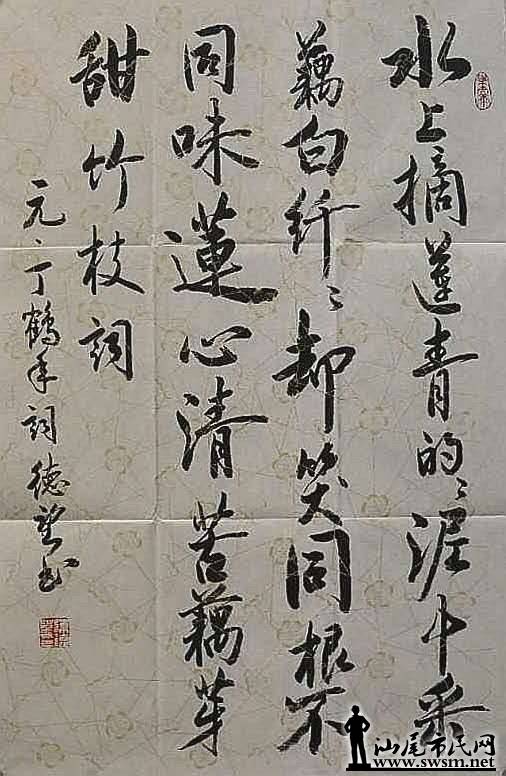 水上摘莲青的々泥中采
藕白纤々却笑同根不
同味莲心清苦藕芽
甜竹枝词
元丁鹤年词德望书
汕尾市民网
www.swsm.net